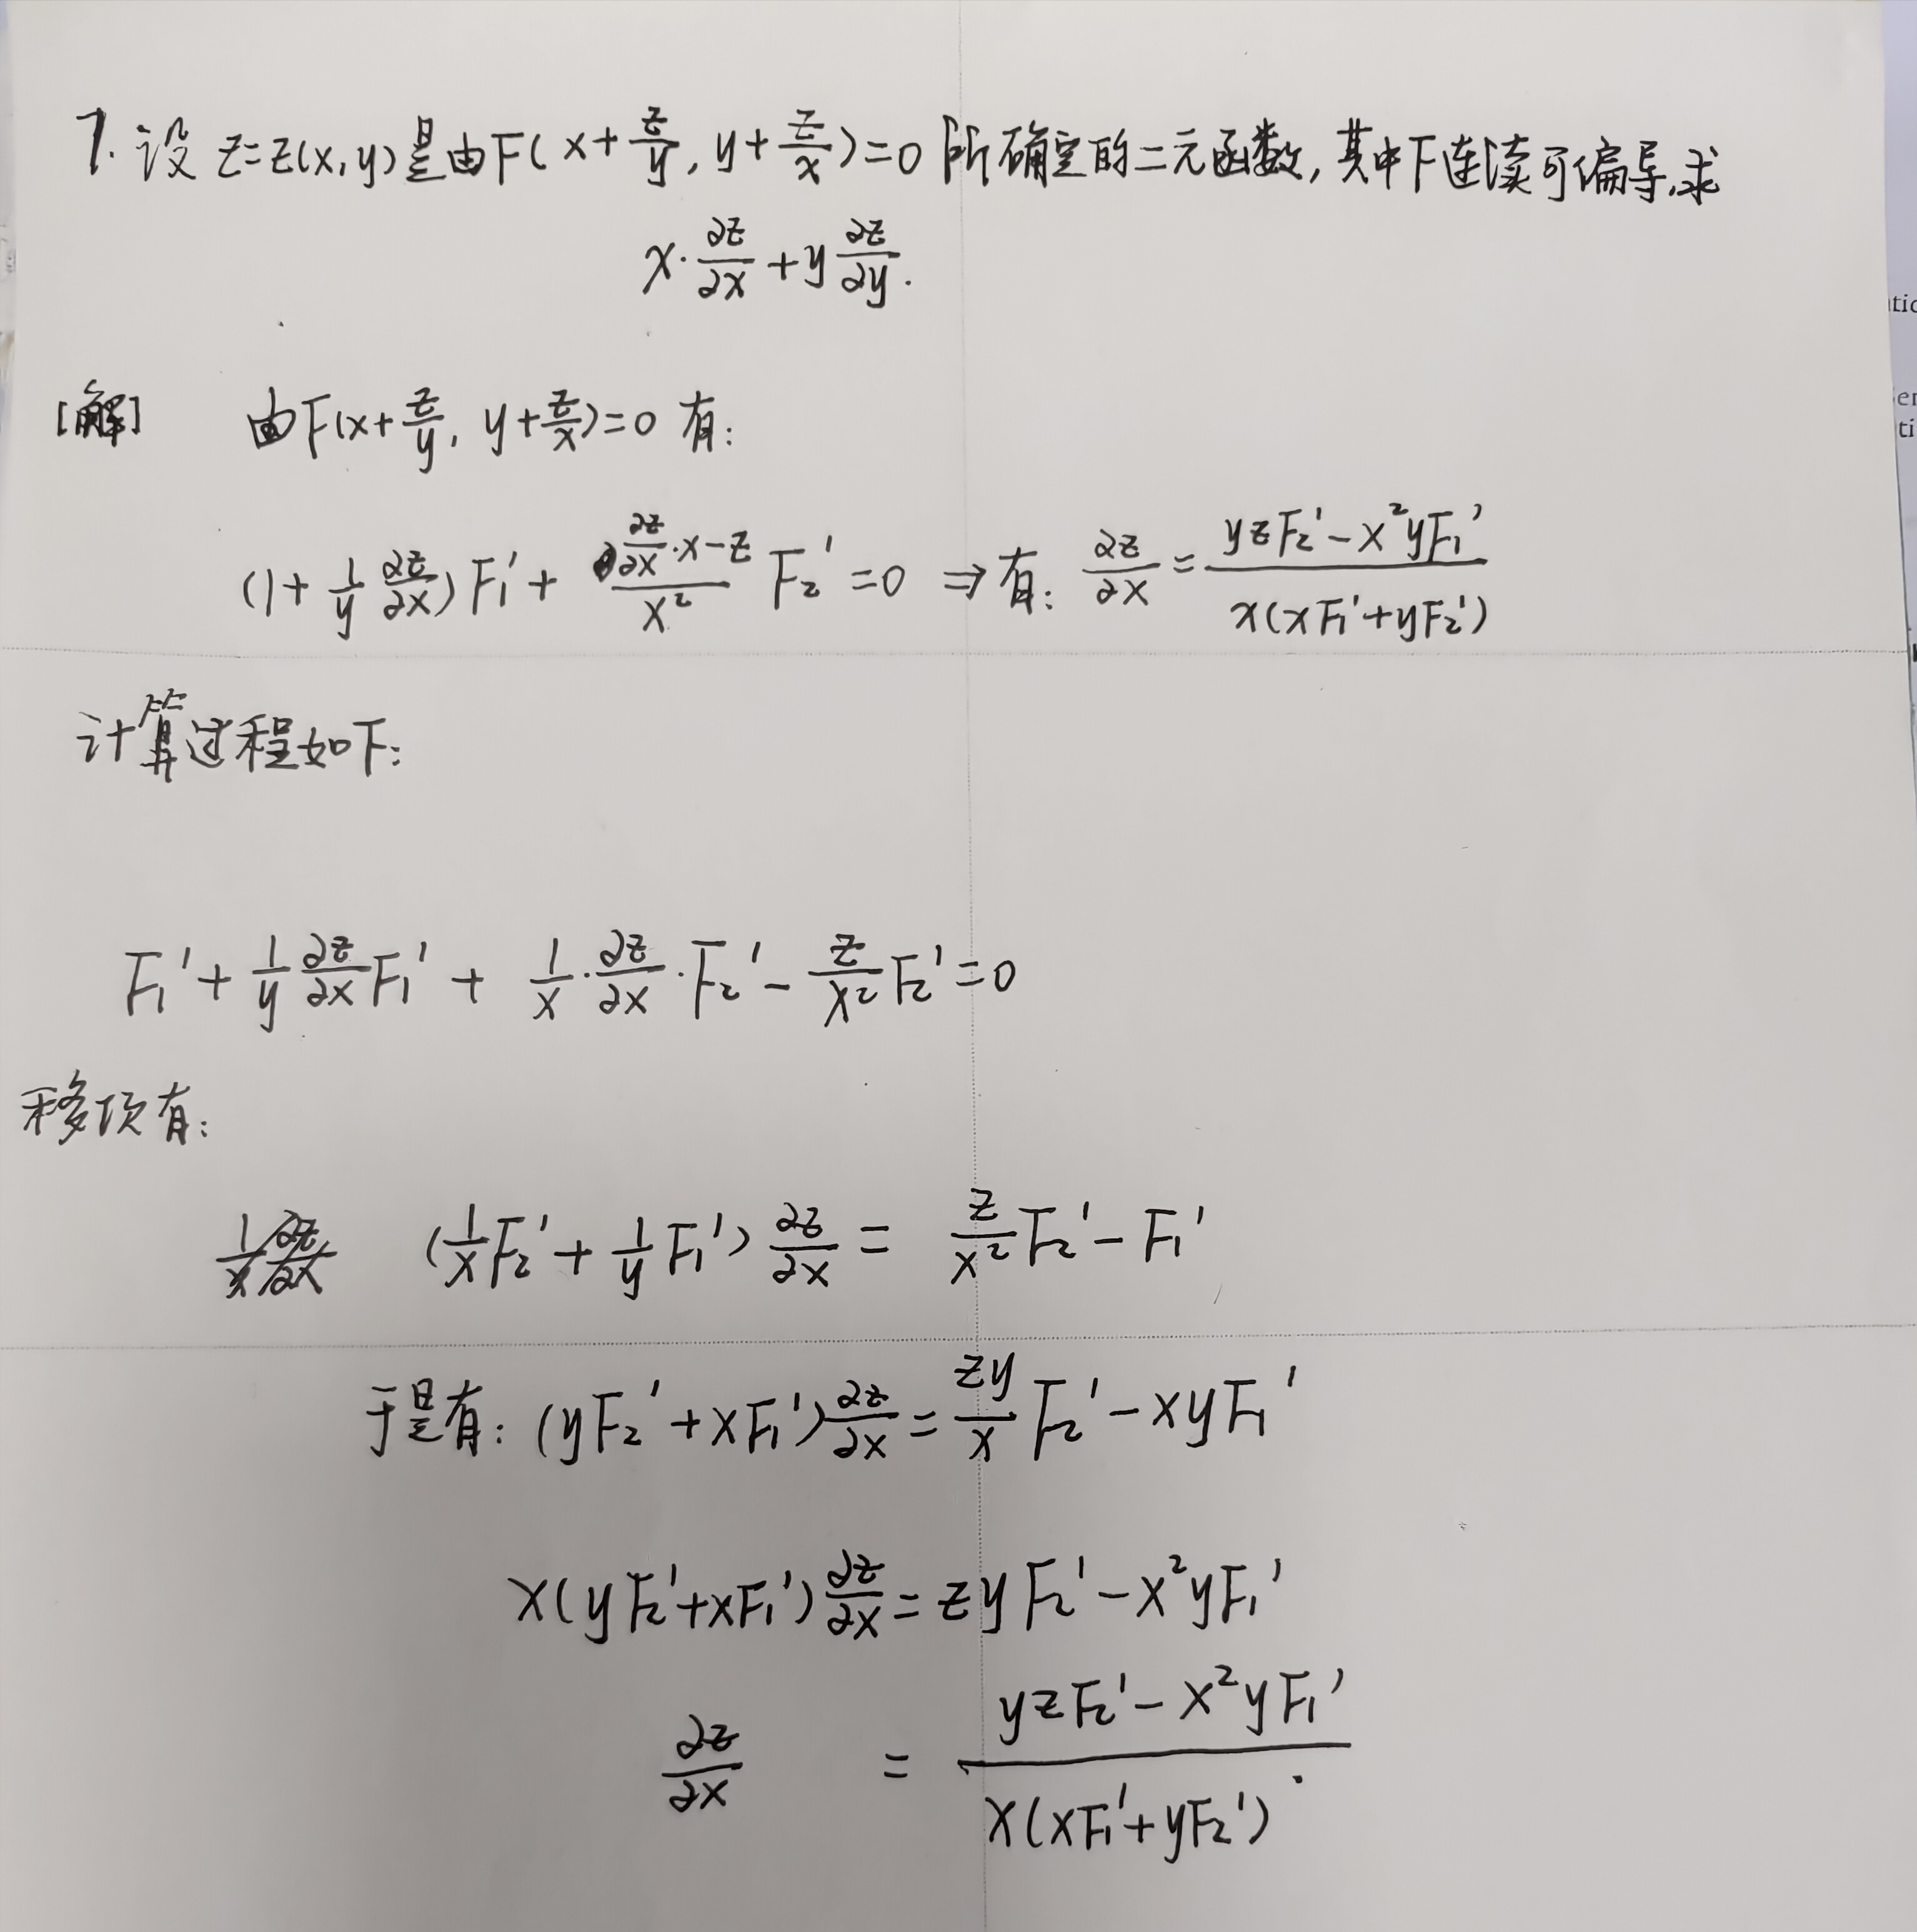 7. 设 z=z(x,y)是由F(x+z/y, y+z/x)=0 所确定的二元函数,其中F连续可偏导,求
x·∂z/∂x+y∂z/∂y.
[解] 由F(x+z/y, y+z/x)=0 有:
(1+1/y ∂z/∂x)F₁′+(∂z/∂x·x-z)/x² F₂′=0 ⇒有: ∂z/∂x=(yzF₂′-x²yF₁′)/(x(xF₁′+yF₂′))
计算过程如下:
F₁′+1/y ∂z/∂x F₁′+1/x·∂z/∂x·F₂′-z/x² F₂′=0
移项有:
(1/x F₂′+1/y F₁′)∂z/∂x=z/x² F₂′-F₁′
于是有: (yF₂′+xF₁′)∂z/∂x=zy/x F₂′-xyF₁′
x(yF₂′+xF₁′)∂z/∂x=zyF₂′-x²yF₁′
∂z/∂x=(yzF₂′-x²yF₁′)/(x(xF₁′+yF₂′))